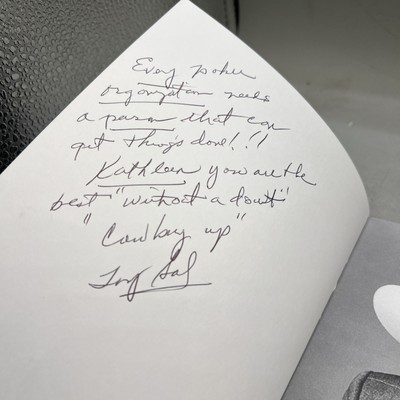 Every poker
organization needs
a person that can
get things done!!!
Kathleen you are the
best "without a doubt"
"Cowboy up"